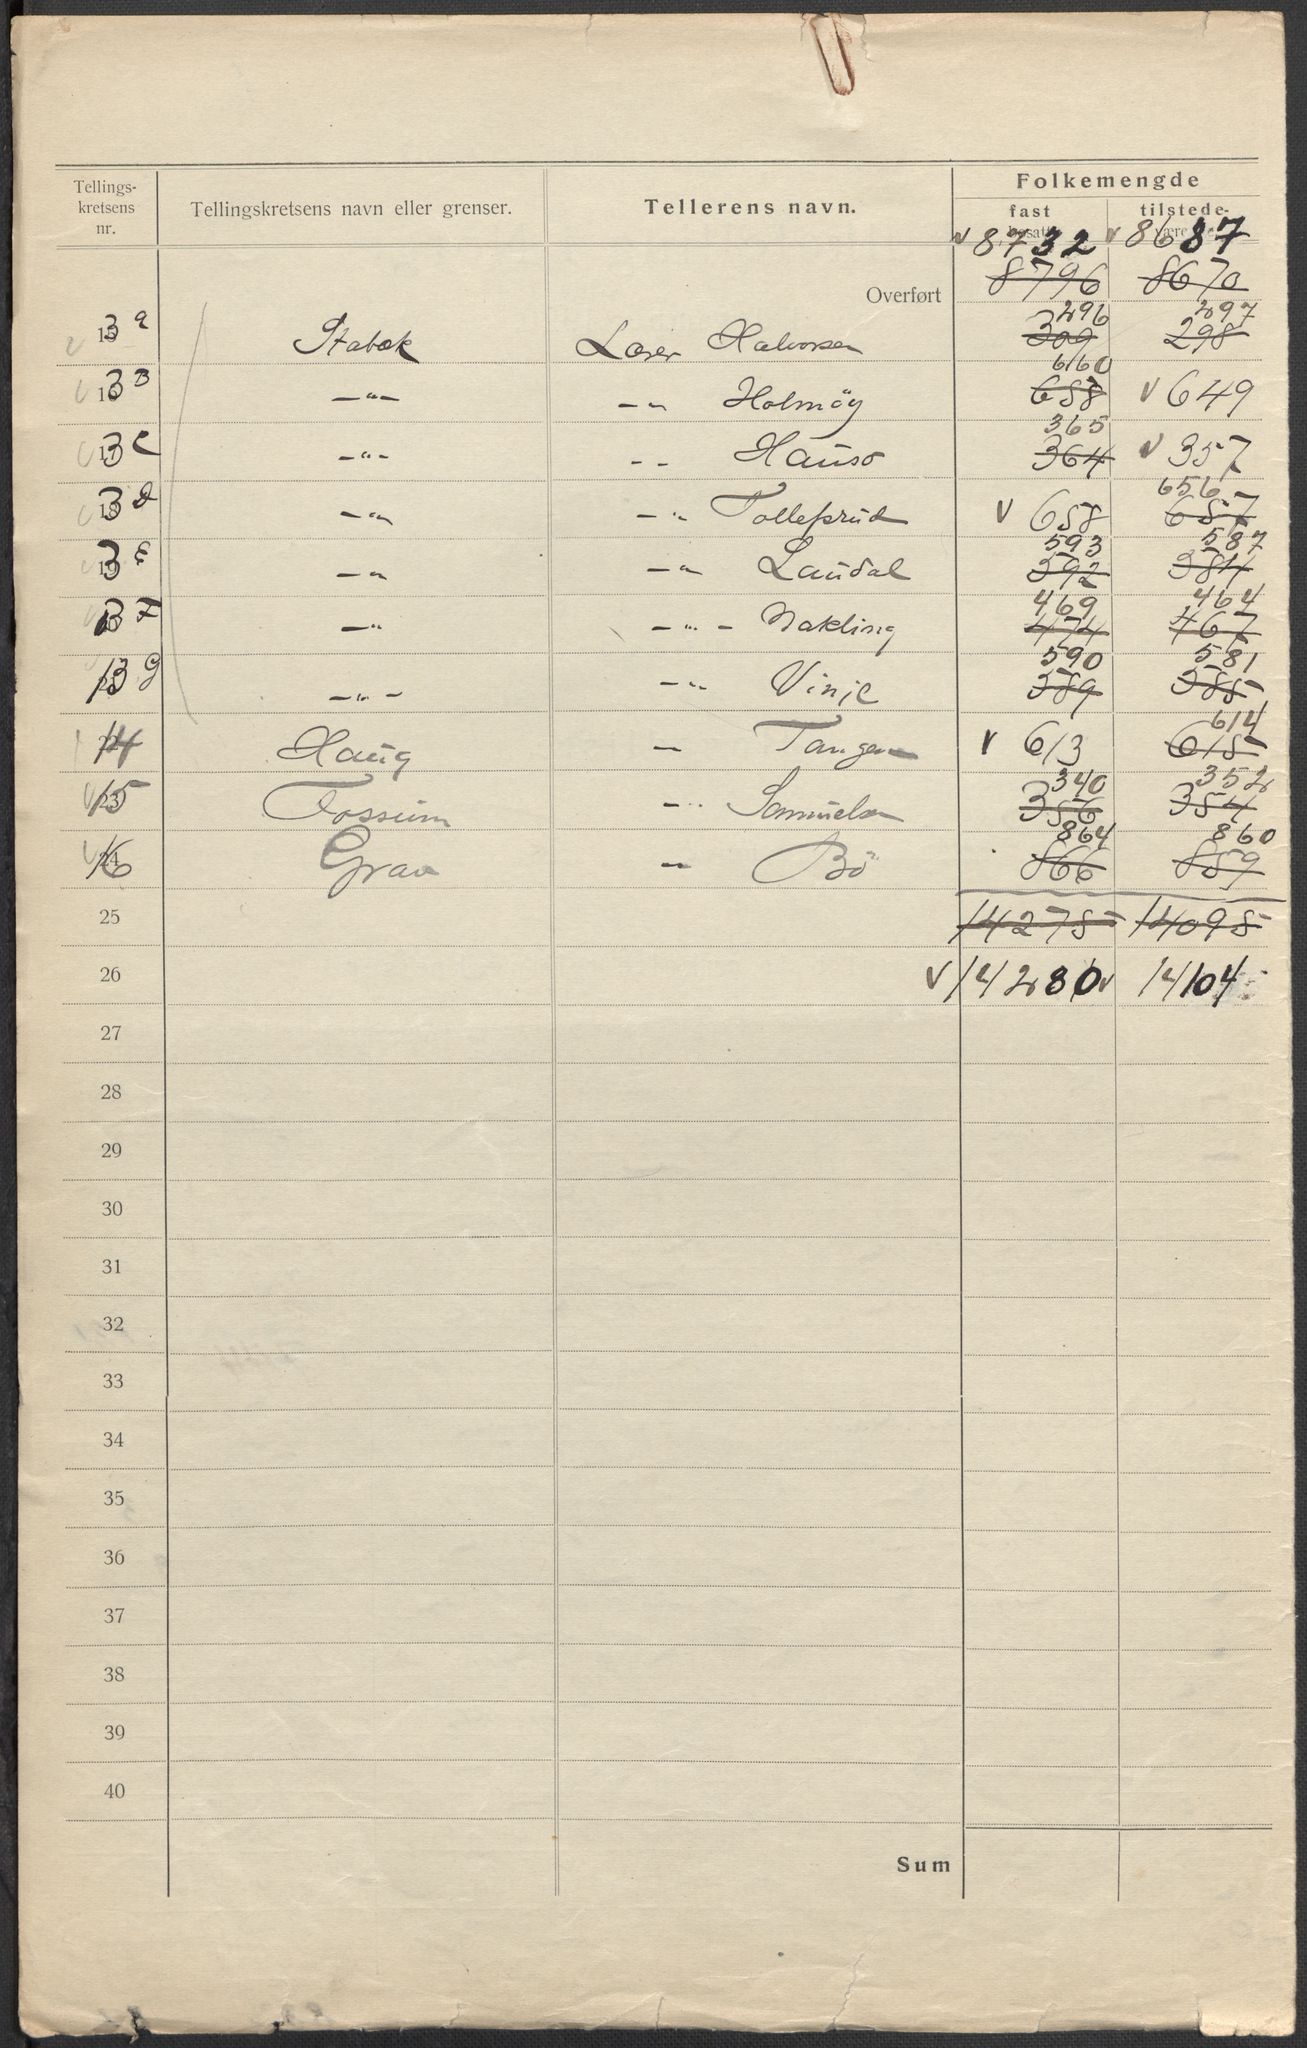 Tellings-
kretsens
nr.
Tellingskretsens navn eller grenser.
Tellerens navn.
Folkemengde
fast
tilstede-
v 8732 v 8687
Overført 8796 8670
296 297
13 a Stabæk Lærer Halvorsen 309 298
660
13 B —"— —"— Holmöy 658 v 649
365
13 C —"— —"— Hauso 364 v 357
656
13 D —"— —"— Tollefsrud v 658 657
593 587
13 E —"— —"— Laudal 592 584
469 464
13 F —"— —"— Nakling 474 467
590 581
13 G —"— —"— Vinje 589 585
614
14 Haug —"— Tangen v 613 615
340 352
15 Fossum —"— Samuelsen 356 354
864 860
16 Grav —"— Bö 866 859
25 14275 14095
26 v 14280 v 14104
27
28
29
30
31
32
33
34
35
36
37
38
39
40
Sum